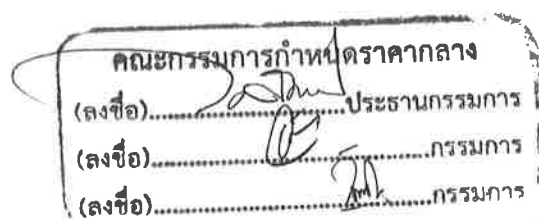 คณะกรรมการกำหนดราคากลาง
(ลงชื่อ)........................ประธานกรรมการ
(ลงชื่อ)........................กรรมการ
(ลงชื่อ)........................กรรมการ